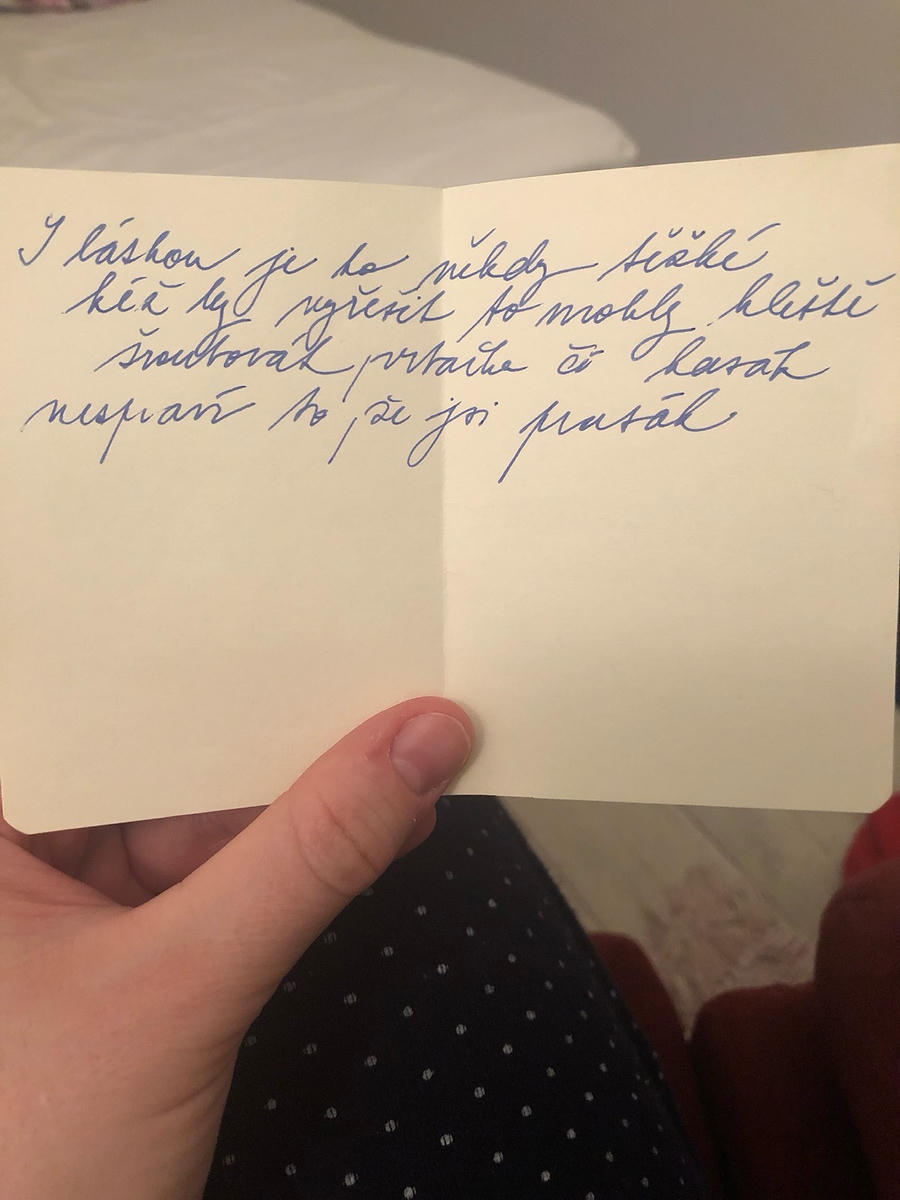 S láskou je to někdy těžké
kéž by vyřešit to mohly kleště
šroubovák, vrtačka či hasák
nespraví to, že jsi prasák